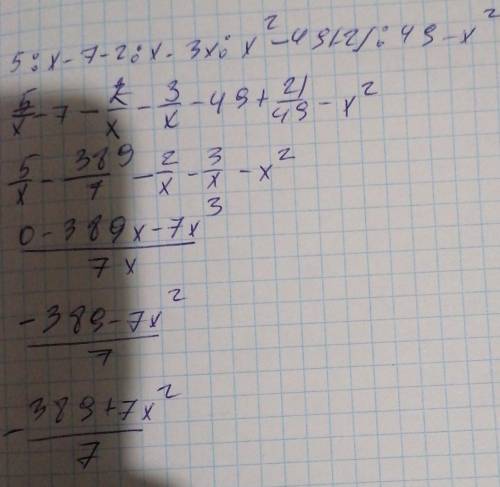 5:x-7-2:x-3x:x²-49+21:49-x²
5/x - 7 - 2/x - 3/x - 49 + 21/49 - x²
5/x - 389/7 - 2/x - 3/x - x²
(0-389x-7x³)/(7x)
(-389-7x²)/7
-(389+7x²)/7